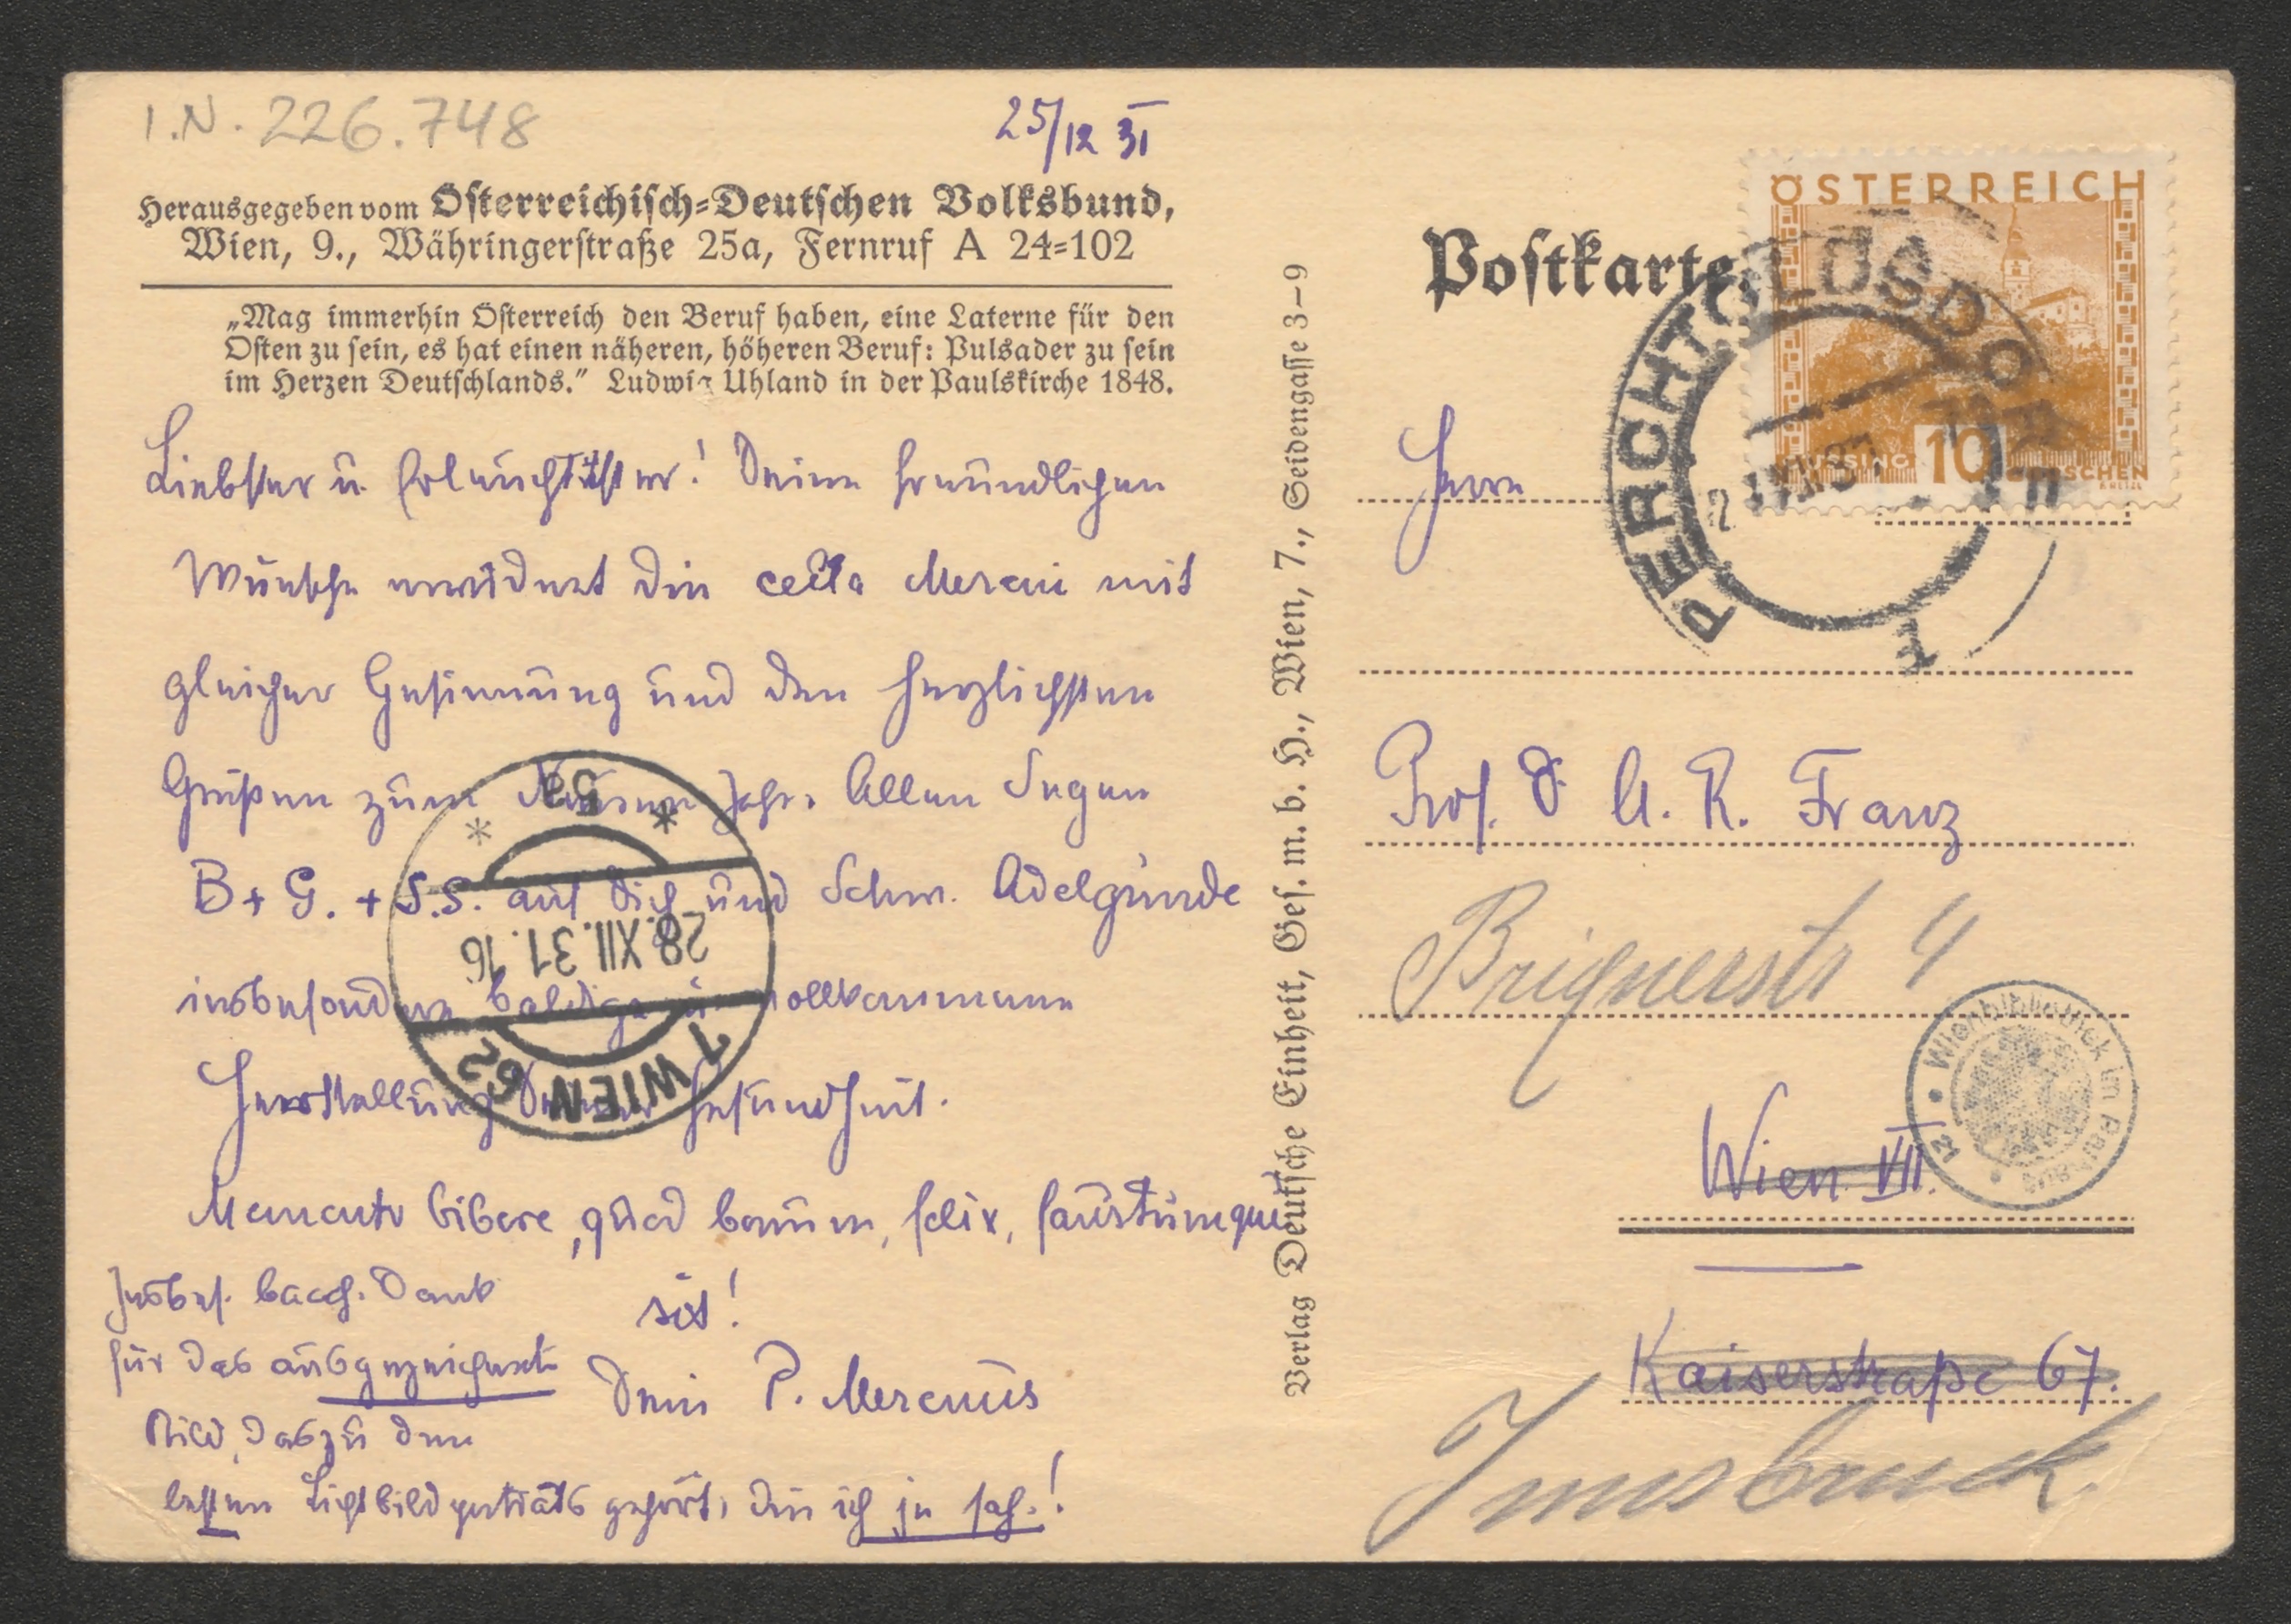 I.N. 226.748
25/12 31
Herausgegeben vom Österreichisch-Deutschen Volksbund,
Wien, 9., Währingerstraße 25a, Fernruf A 24-102
„Mag immerhin Österreich den Beruf haben, eine Laterne für den
Osten zu sein, es hat einen näheren, höheren Beruf: Pulsader zu sein
im Herzen Deutschlands.” Ludwig Uhland in der Paulskirche 1848.
Liebster u. Erleuchtetster! Deine freundlichen
Wünsche erwidert die cella Mercui mit
gleicher Gesinnung und den herzlichsten
Grüßen zum Neuen Jahr. Allen Segen
B + G. + S.S. auf Dich und Schw. Adelgunde
insbesondere baldige u. vollkommene
Herstellung Deiner Gesundheit.
Memento bibere, quod bonum, felix, faustumque
sit!
Dein P. Mercuus
Insbes. bacch. Dank
für das ausgezeichnete
Bild, das zu den
besten Lichtbildporträts gehört, die ich je sah.!
* 53 *
28.XII.31.16
1 WIEN 62
Verlag Deutsche Einheit, Ges. m. b. H., Wien, 7., Seidengasse 3–9
Postkarte
ÖSTERREICH
10
GROSCHEN
PERCHTOLDSDORF
Herrn
Prof. Dr A. R. Franz
Wien VII.
Kaiserstraße 67.
Innsbruck
Wienbibliothek im Rathaus